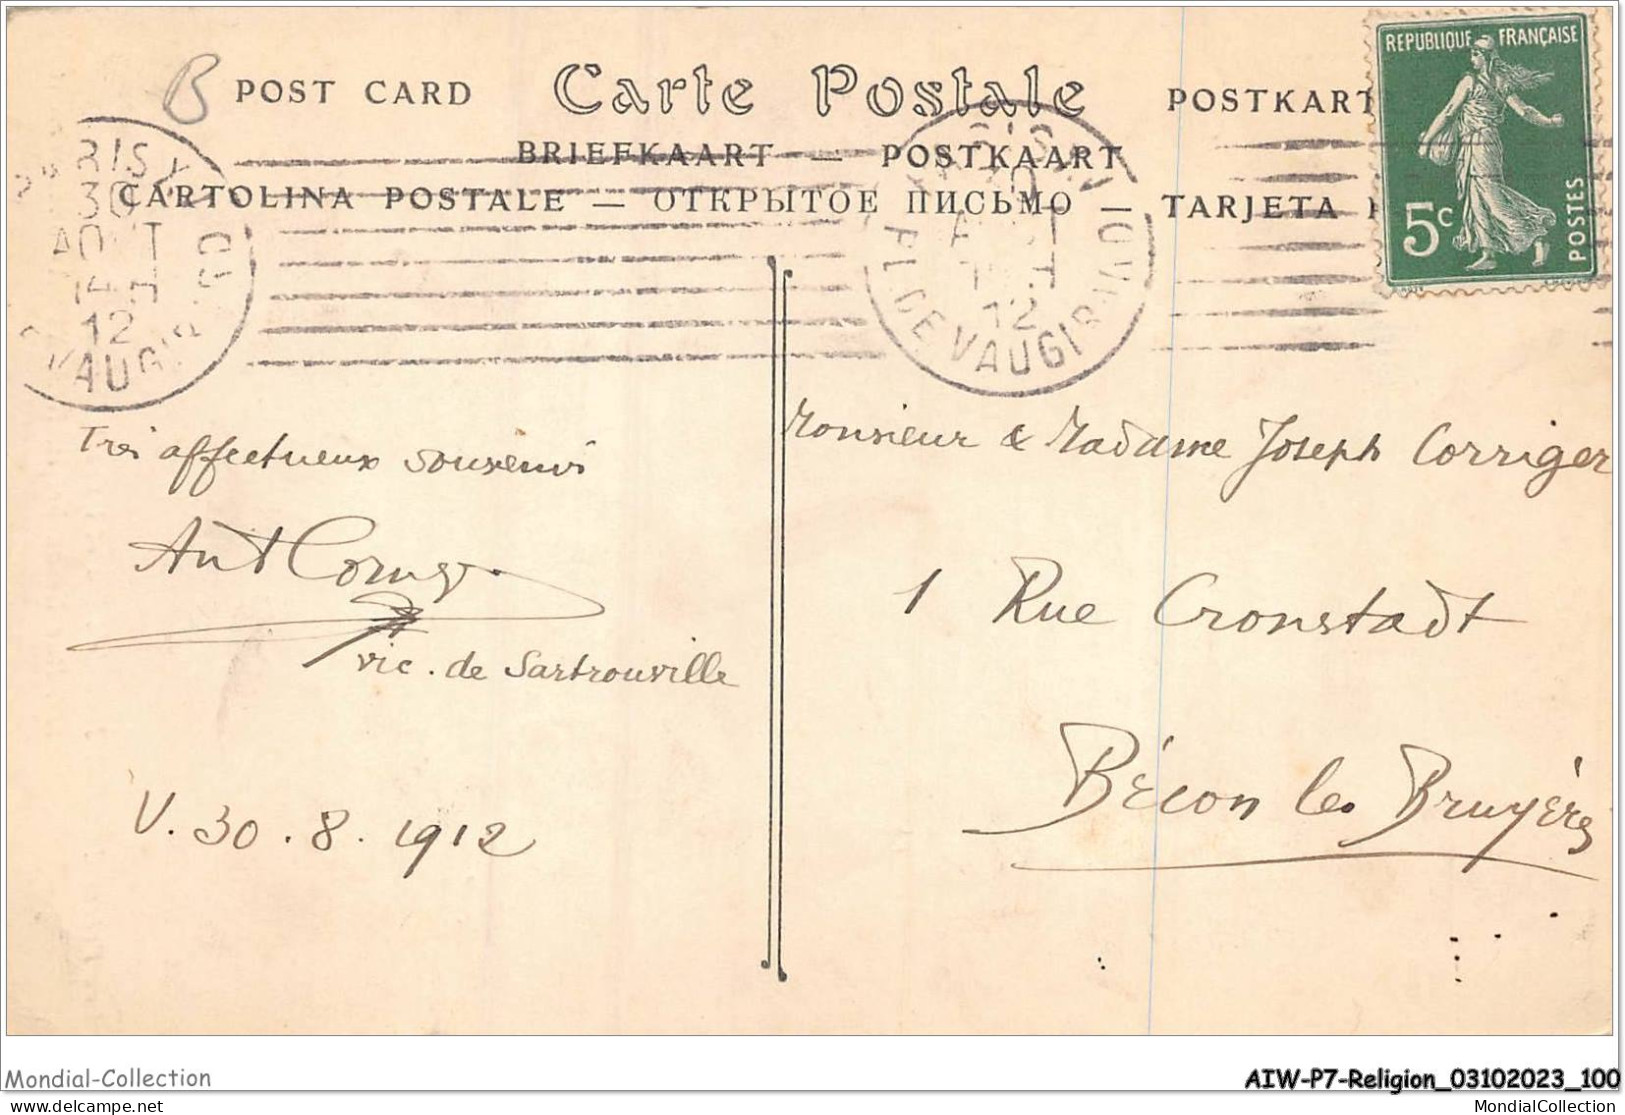 B
POST CARD Carte Postale POSTKART
BRIEFKAART — POSTKAART
CARTOLINA POSTALE — ОТКРЫТОЕ ПИСЬМО — TARJETA
REPUBLIQUE FRANÇAISE
5c
POSTES
30
12
VAUGIR
12
PLACE VAUGIR
Très affectueux souvenir
Ant
vic. de Sartrouville
V. 30.8.1912
Monsieur & Madame Joseph Corriger
1 Rue Cronstadt
Bécon les Bruyères
Mondial-Collection
AIW-P7-Religion_03102023_100
delcampe.net
MondialCollection